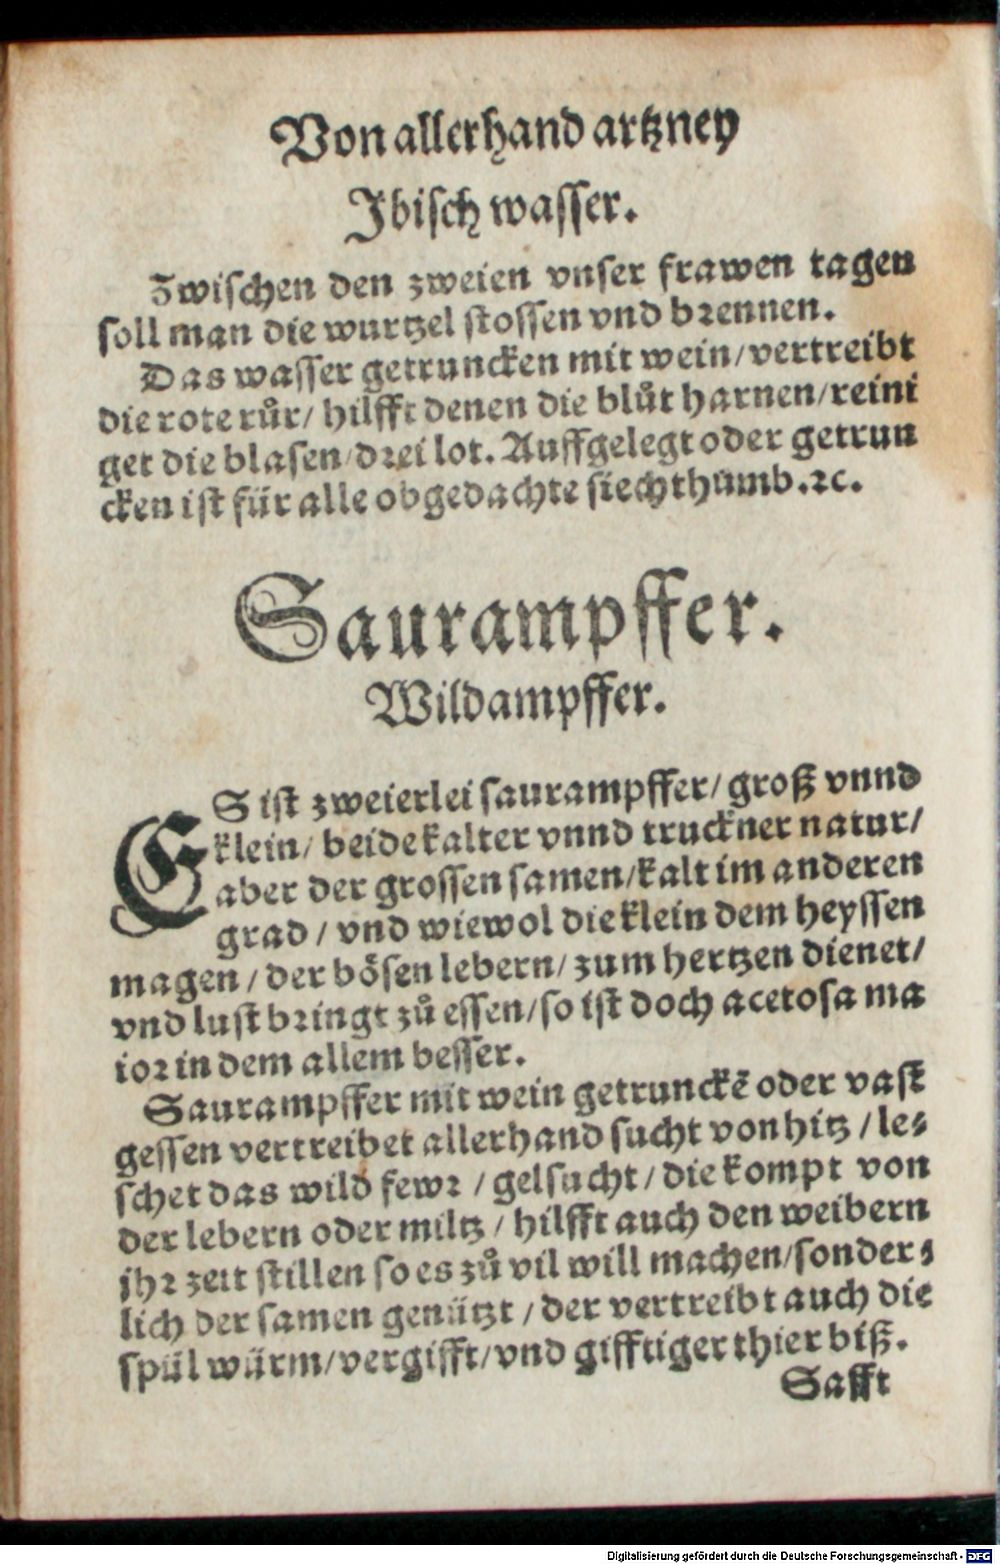 Von allerhand artzney
Ibisch wasser.
Zwischen den zweien vnser frawen tagen
soll man die wurtzel stossen vnd brennen.
Das wasser getruncken mit wein/vertreibt
die rote růr/ hilfft denen die blůt harnen/reini
get die blasen/drei lot. Auffgelegt oder getrun
cken ist für alle obgedachte siechthumb.ꝛc.
Saurampffer.
Wildampffer.
ES ist zweierlei saurampffer/ groß vnnd
klein/ beide kalter vnnd truckner natur/
aber der grossen samen/kalt im anderen
grad / vnd wiewol die klein dem heyssen
magen / der bösen lebern/ zum hertzen dienet/
vnd lust bringt zů essen/so ist doch acetosa ma
ior in dem allem besser.
Saurampffer mit wein getrunckē oder vast
gessen vertreibet allerhand sucht von hitz / le⸗
schet das wild fewr / gelsucht / die kompt von
der lebern oder miltz / hilfft auch den weibern
jhr zeit stillen so es zů vil will machen/sonder⸗
lich der samen genützt / der vertreibt auch die
spül würm/vergifft/vnd gifftiger thier biß.
Safft
Digitalisierung gefördert durch die Deutsche Forschungsgemeinschaft - DFG